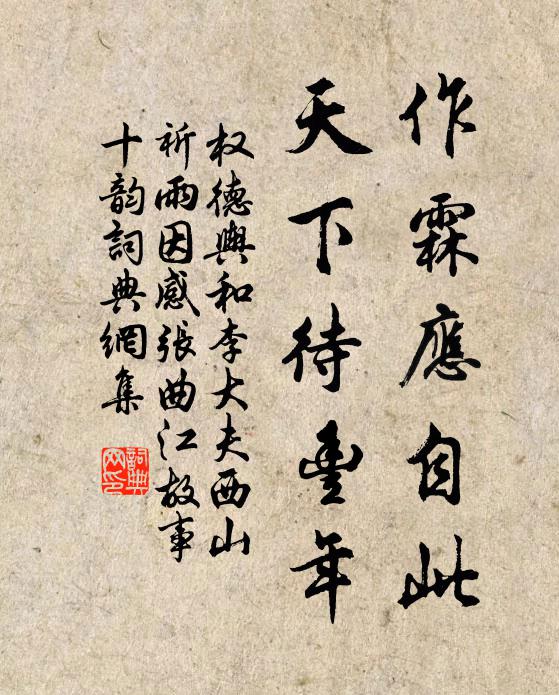 作霖應自此
天下待豐年
权德輿和李大夫西山
祈雨因感張曲江故事
十韵詞典網集
詞典
网印